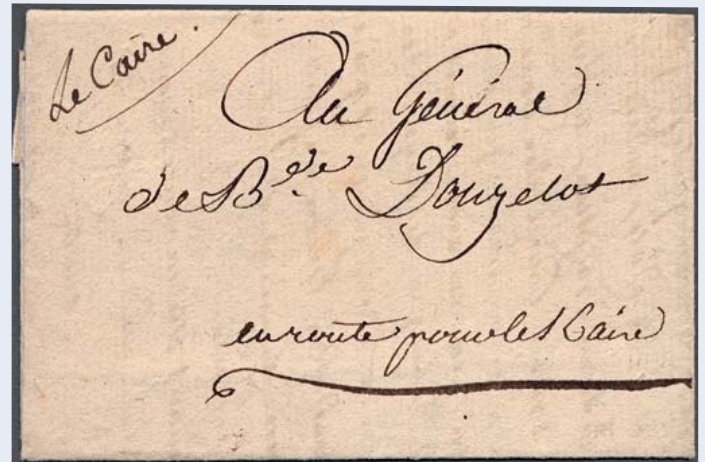 Le Caire.
Au Général
de B.de Donzelot
en route pour le Caire